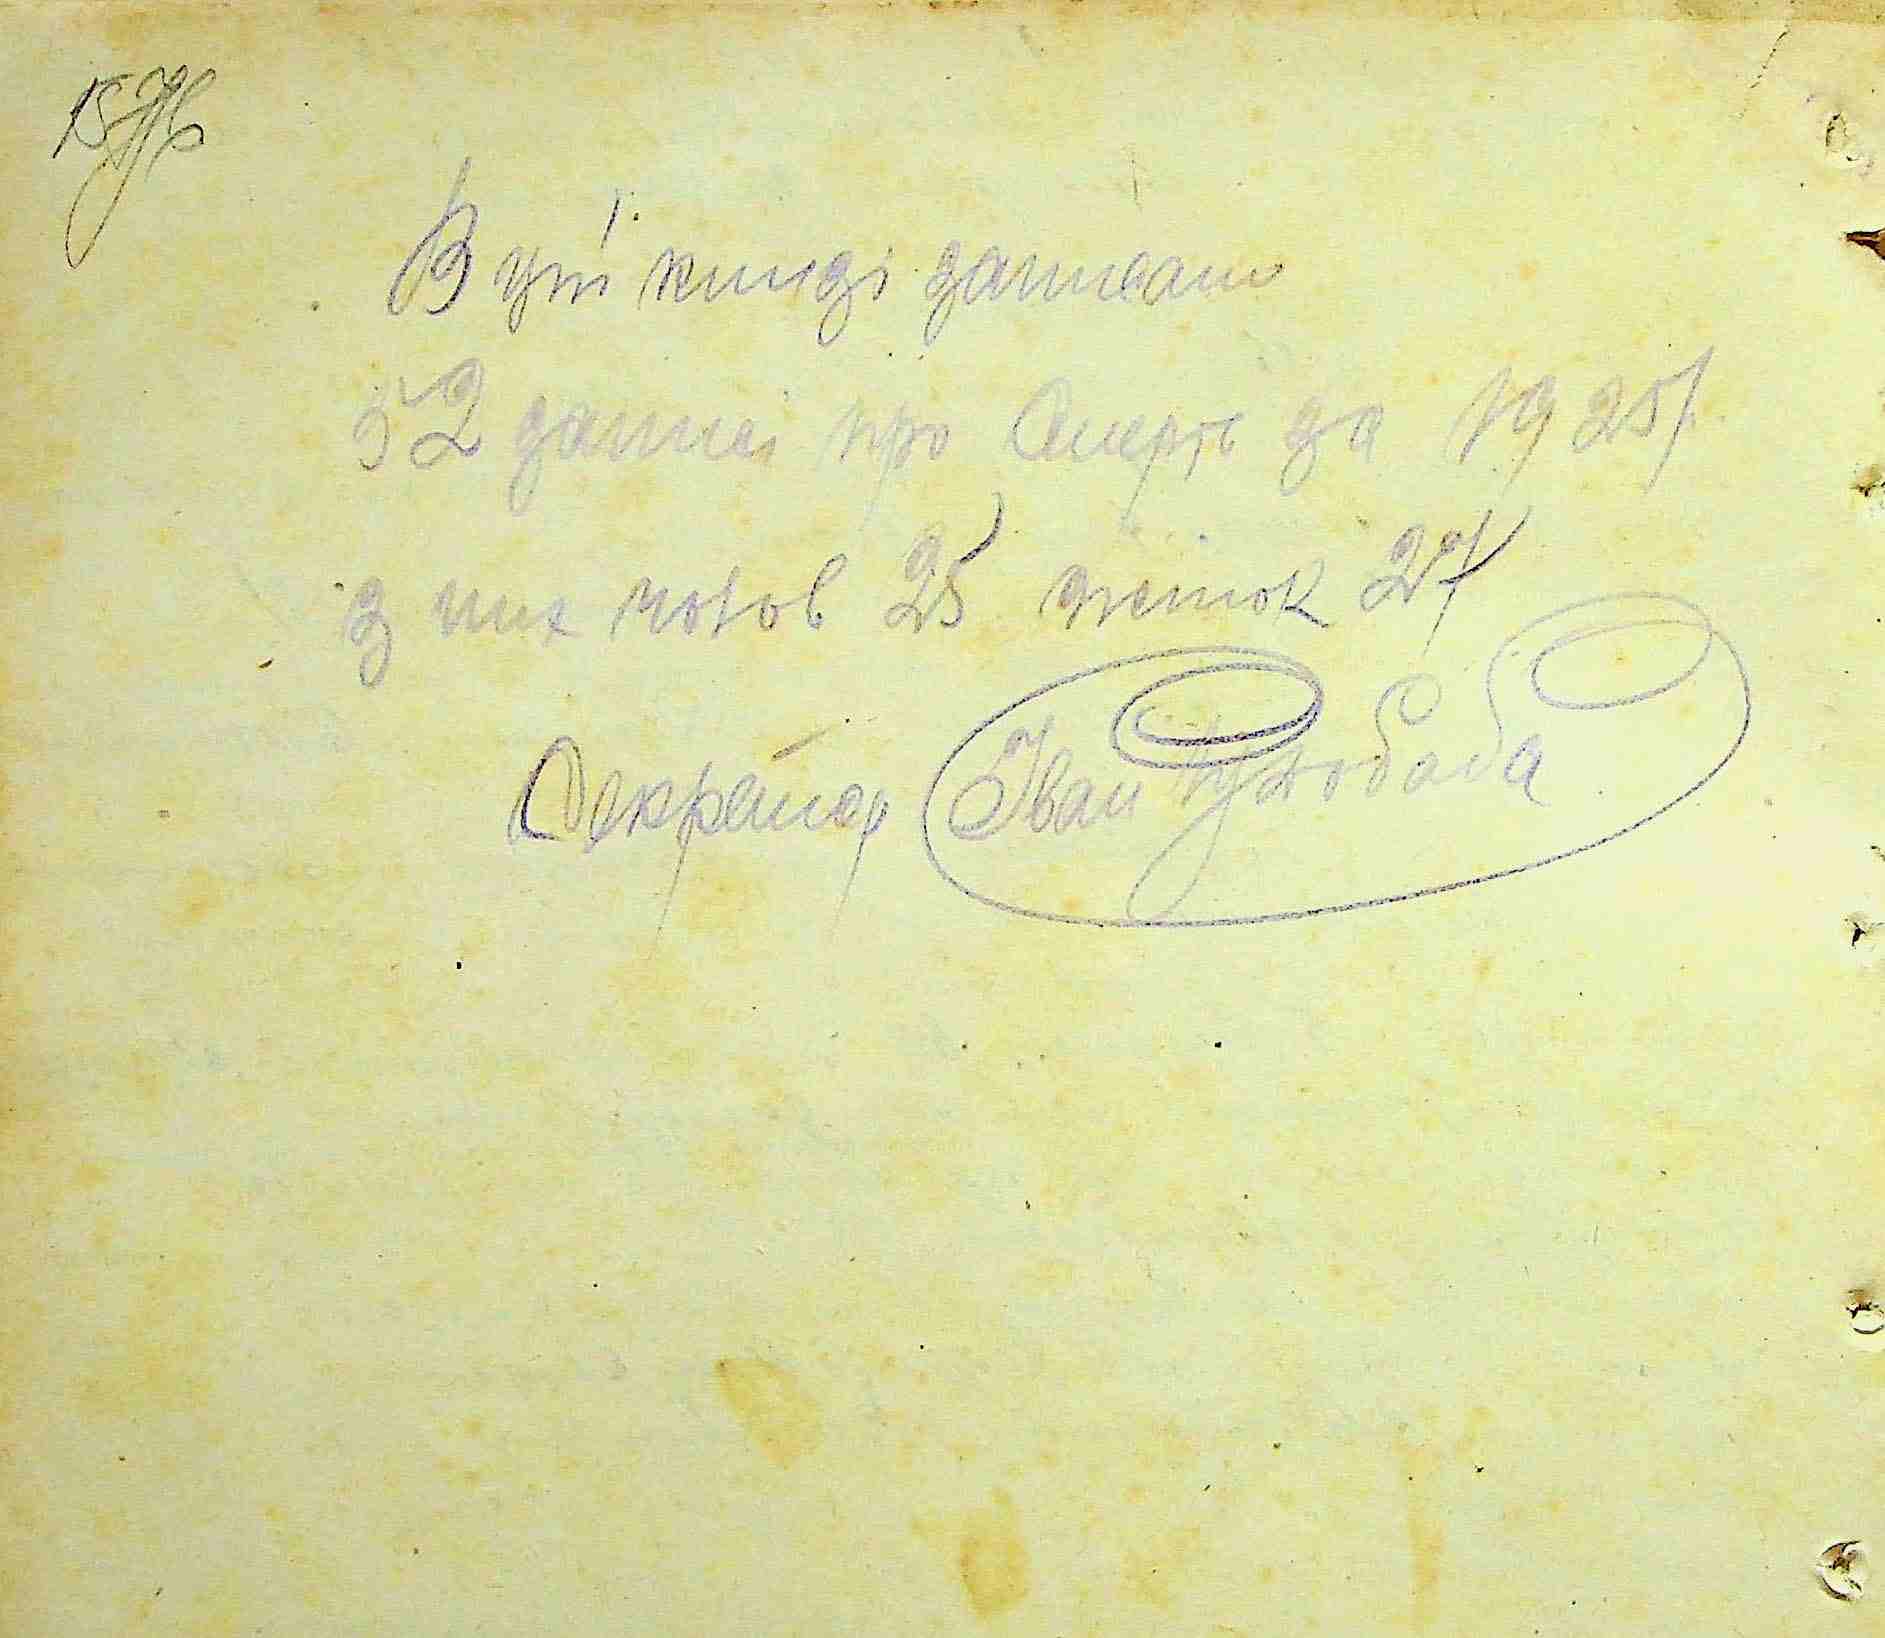 В цій книзі записано
52 записі про смерть за 1925 р.
з них чолов 25 жінок 27
Секретар Іван